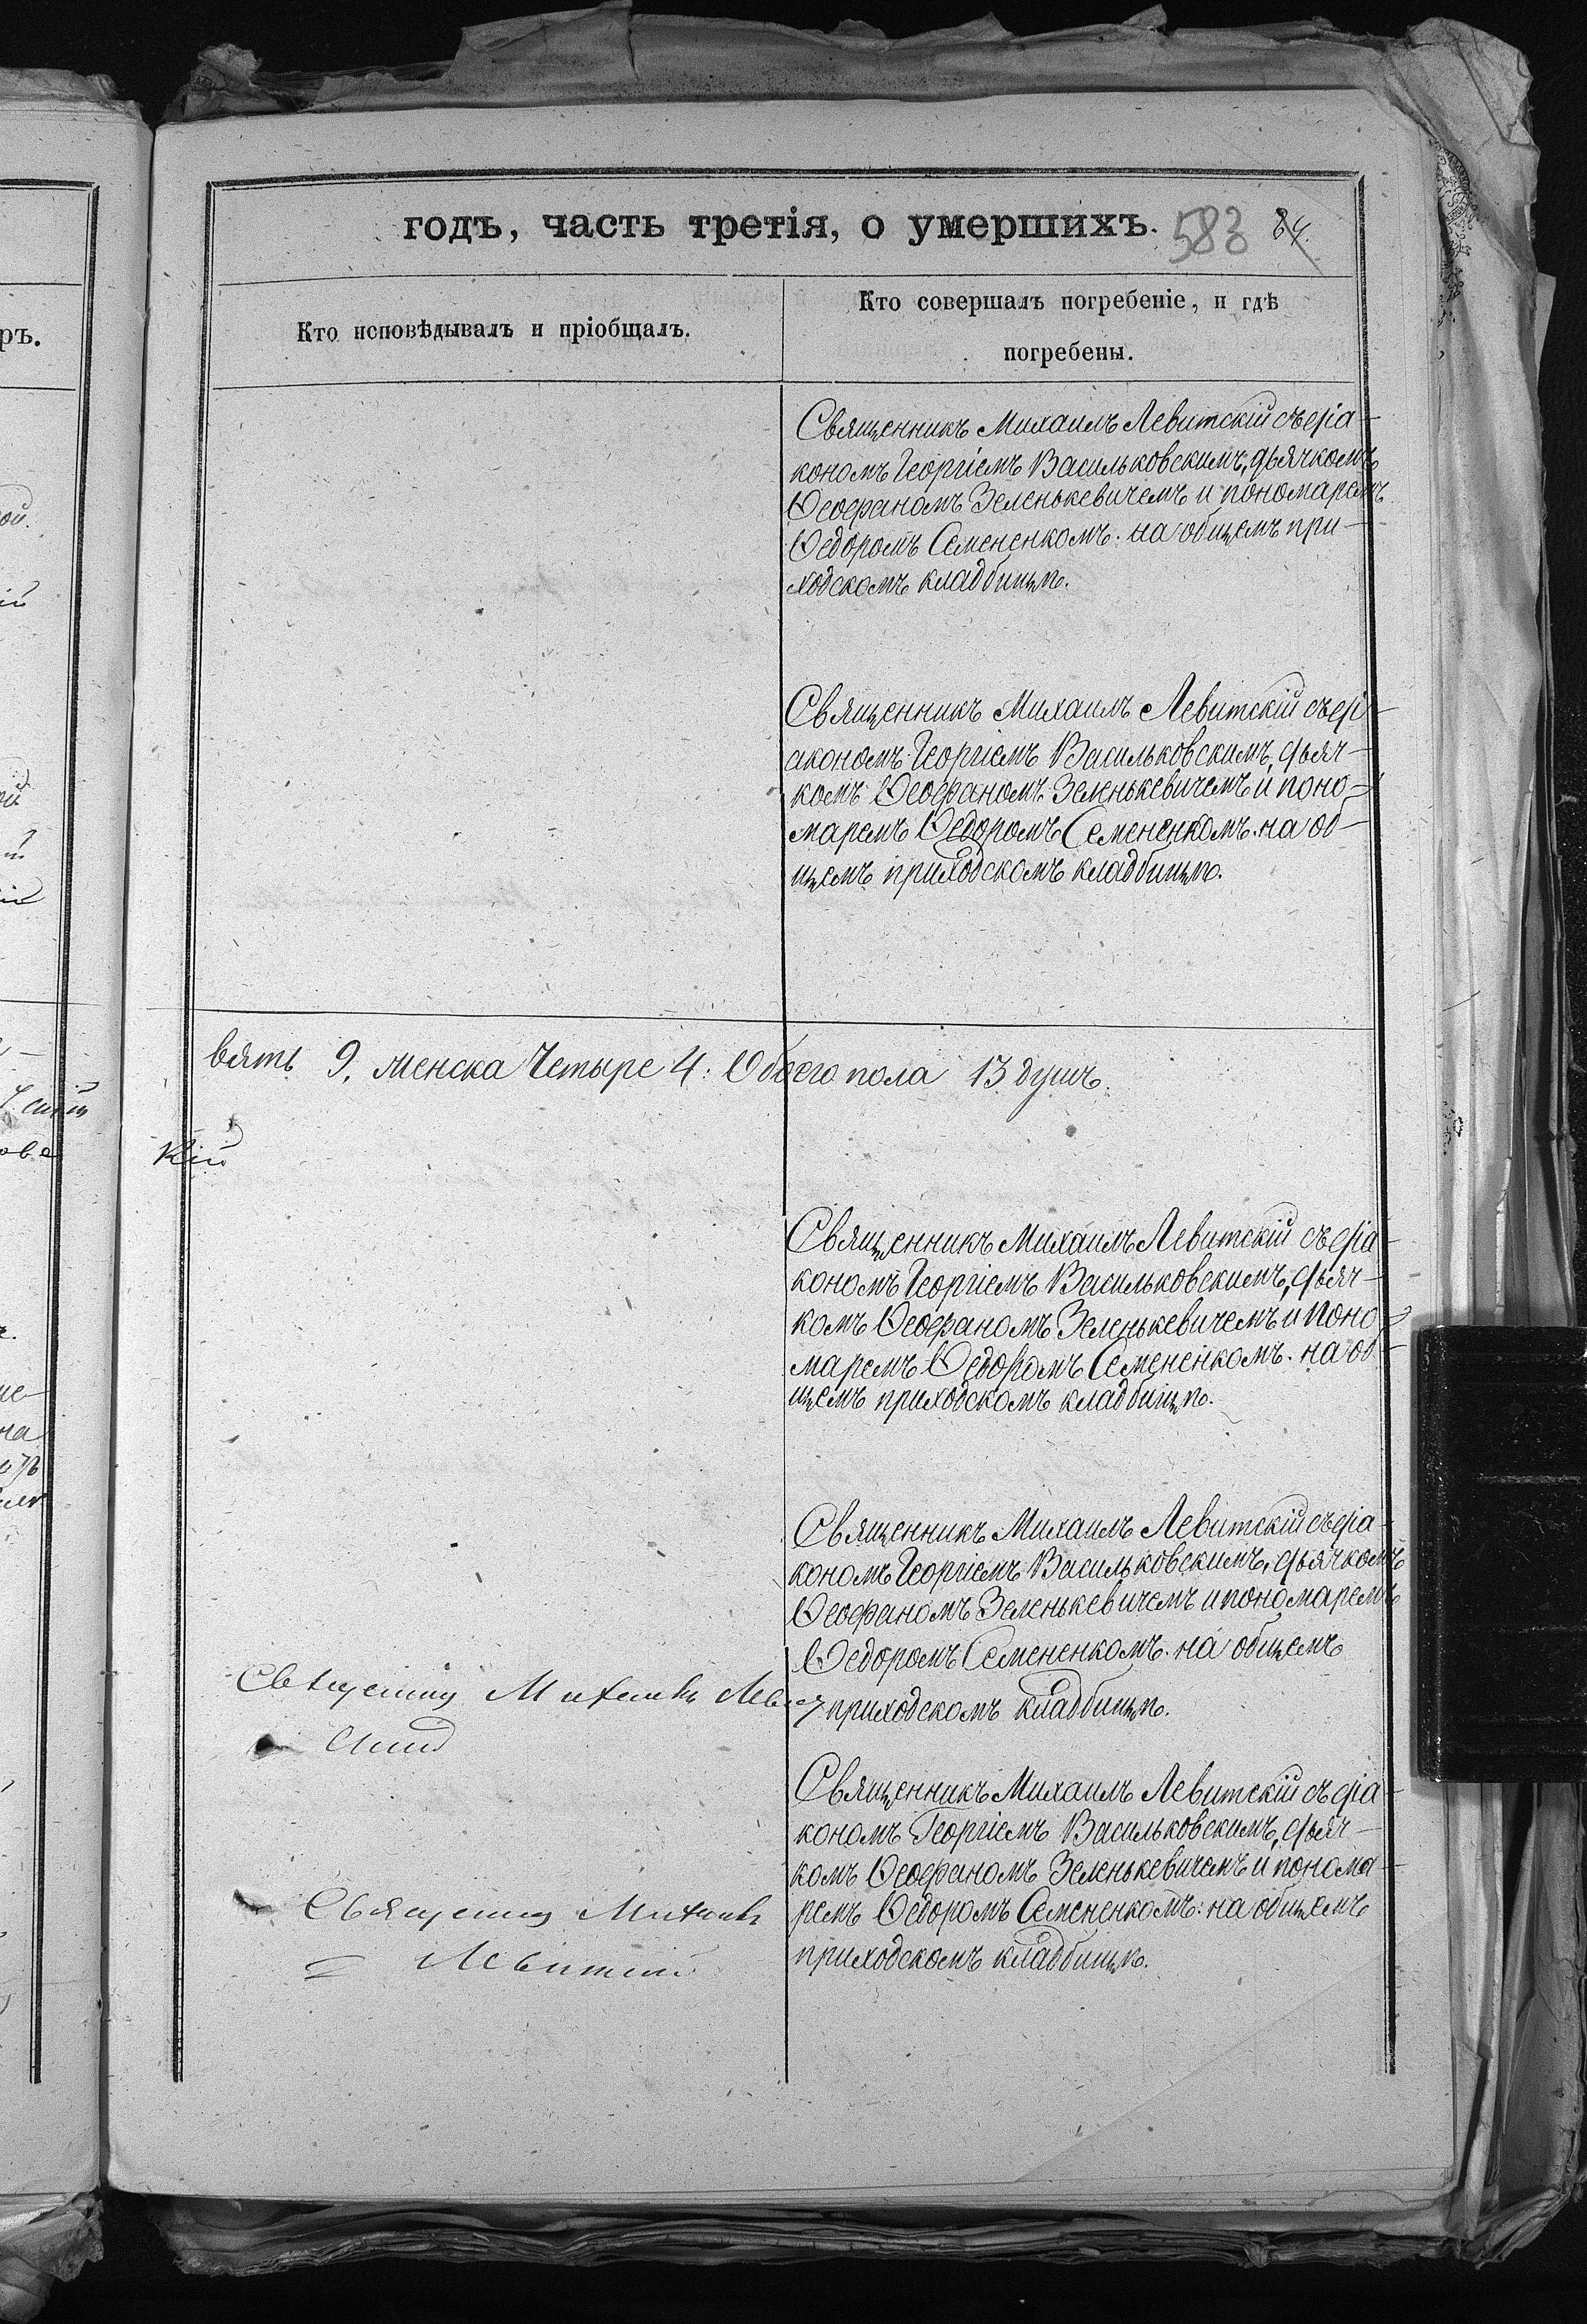 годъ, часть третія, о умершихъ. 583 84.
Кто исповѣдывалъ и пріобщалъ.
Кто совершалъ погребеніе, и гдѣ
погребены.
Священникъ Михаилъ Левитскій съ діа-
кономъ Георгіемъ Васильковскимъ, дьячкомъ
Ѳеофаномъ Зеленькевичемъ и пономаремъ
Ѳедоромъ Семененкомъ. на общемъ при-
ходскомъ кладбищѣ.
Священникъ Михаилъ Левитскій съ ді-
акономъ Георгіемъ Васильковскимъ, дьяч-
комъ Ѳеофаномъ Зеленькевичемъ и поно-
маремъ Ѳедоромъ Семененкомъ. на об-
щемъ приходскомъ кладбищѣ.
вять 9. женска Четыре 4. Обоего пола 13 душъ.
кій
Священникъ Михаилъ Левитскій съ діа-
кономъ Георгіемъ Васильковскимъ, дьяч-
комъ Ѳеофаномъ Зеленькевичемъ и поно-
маремъ Ѳедоромъ Семененкомъ. на об-
щемъ приходскомъ кладбищѣ.
Священникъ Михаилъ Левитскій съ діа-
кономъ Георгіемъ Васильковскимъ, дьячкомъ
Ѳеофаномъ Зеленькевичемъ и пономаремъ
Ѳедоромъ Семененкомъ. на общемъ
приходскомъ кладбищѣ.
Священникъ Михаилъ Левит
скій
Священникъ Михаилъ Левитскій съ діа-
кономъ Георгіемъ Васильковскимъ, дьяч-
комъ Ѳеофаномъ Зеленькевичемъ и понома-
ремъ Ѳедоромъ Семененкомъ: на общемъ
приходскомъ кладбищѣ.
Священникъ Михаилъ
= Левитскій